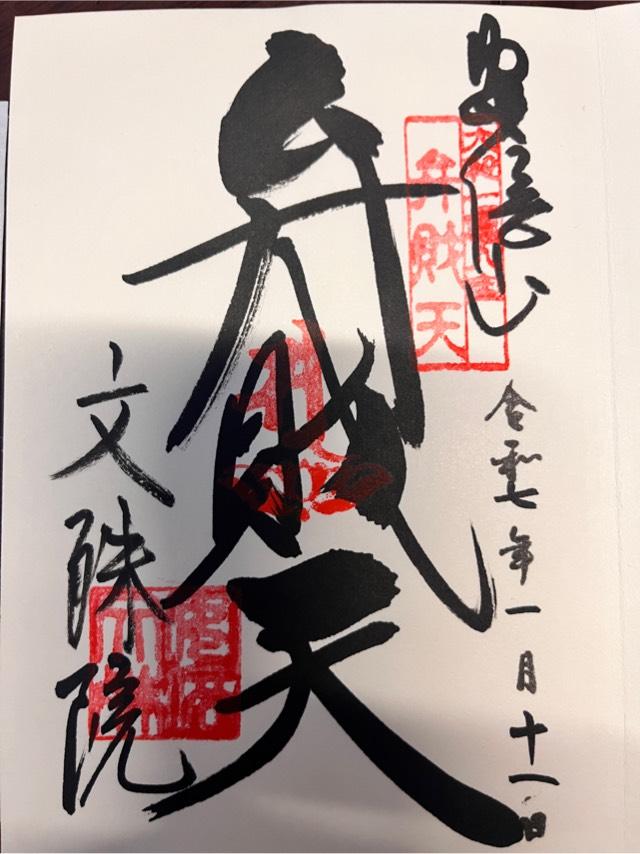 安倍山
弁財天
令和七年一月十一日
弁財天
文殊院